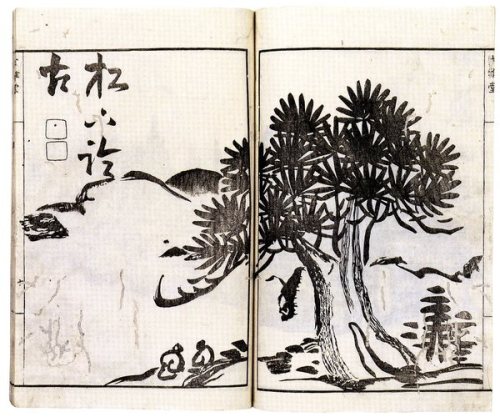 松下論
古